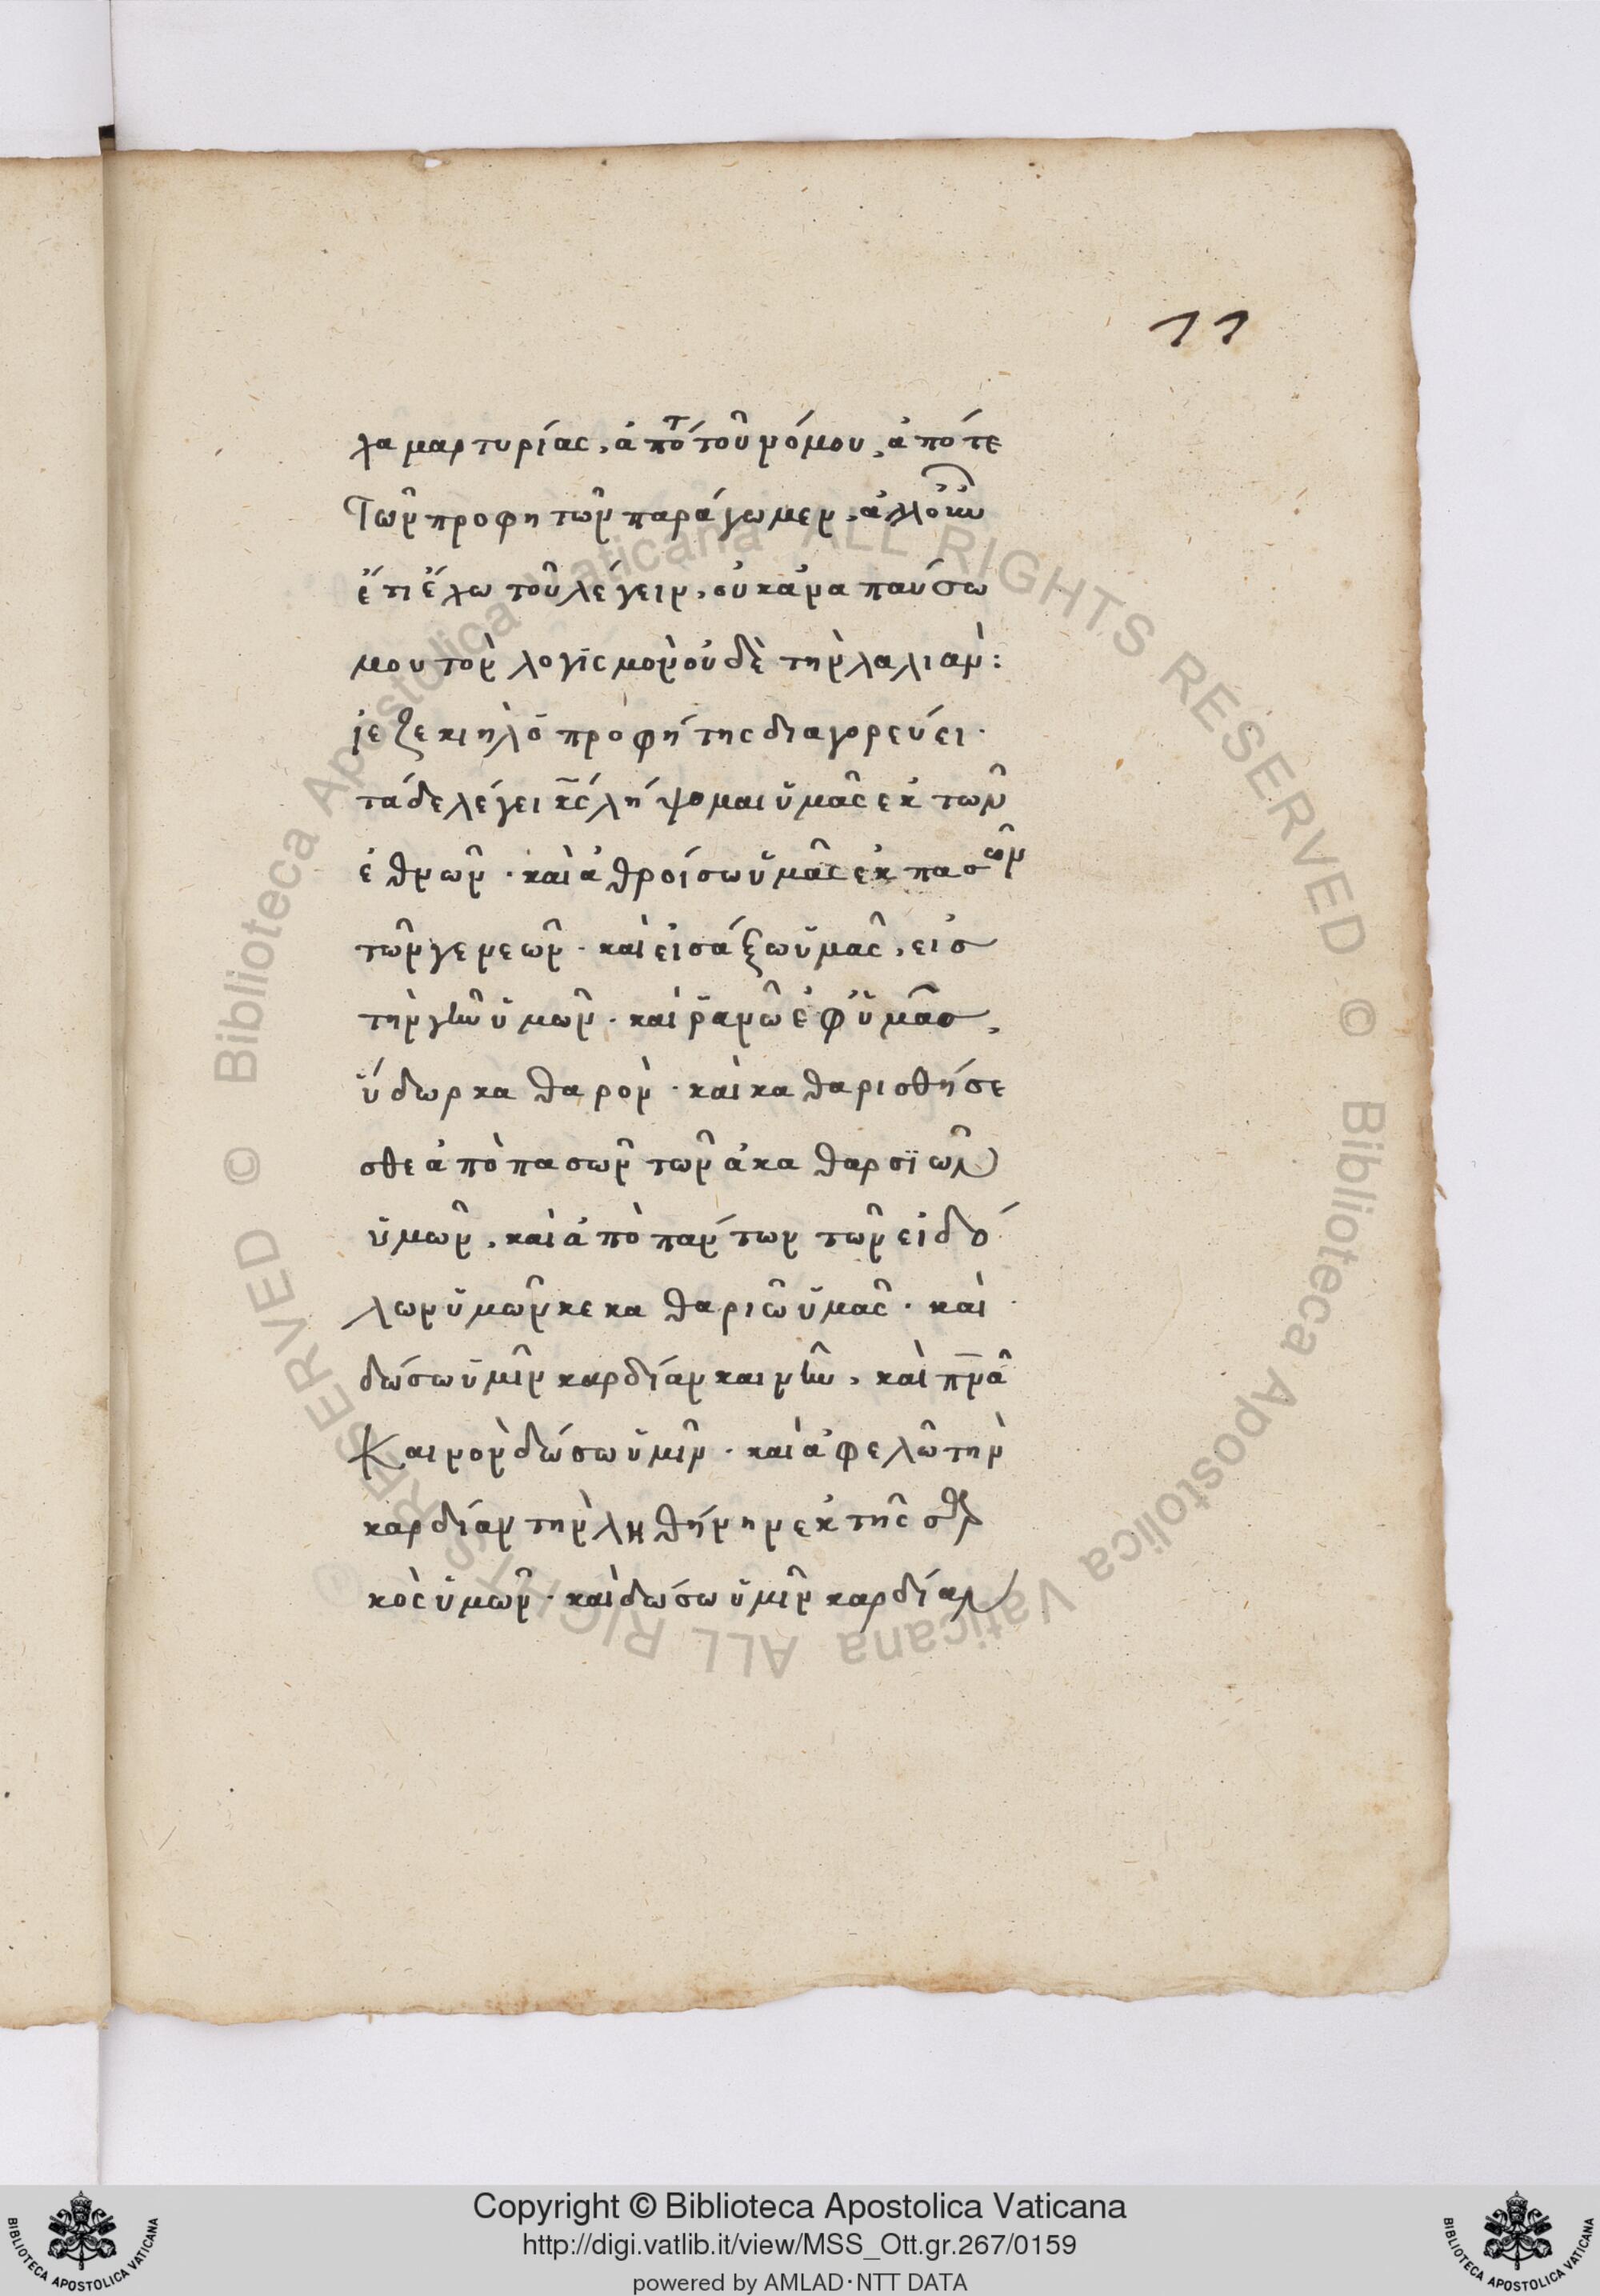 11
λα μαρτυρίας, ἀπότ τοῦ νόμου, ἀπό τε
τῶν προφητῶν παράγωμεν, ἀλλ' οὖν
ἔτι ἔχω τοῦ λέγειν, οὐκ ἀναπαύσω
μου τὸν λογισμὸν οὐδὲ τὴν λαλιὰν:
ἰεζεκιὴλ ὁ προφήτης διαγορεύει·
τάδε λέγει κς λήψομαι ὑμᾶς ἐκ τῶν
ἐθνῶν · καὶ ἀθροίσω ὑμᾶς ἐκ πασῶν
τῶν γενεῶν · καὶ εἰσάξω ὑμᾶς, εἰς
τὴν γῆν ὑμῶν · καὶ ῥανῶ ἐφ' ὑμᾶς,
ὕδωρ καθαρὸν · καὶ καθαρισθήσε
σθε ἀπὸ πασῶν τῶν ἀκαθαρσϊῶν
ὑμῶν, καὶ ἀπὸ πάντων τῶν εἰδό
λων ὑμῶν κε καθαριῶ ὑμᾶς · καὶ
δώσω ὑμῖν καρδίαν καινὴν, καὶ πνᾶ
καινὸν δώσω ὑμῖν · καὶ ἀφελῶ τὴν
καρδίαν τὴν ληθήνην ἐκ τῆς σαρ
κὸς ὑμῶν · καὶ δώσω ὑμῖν καρδίαν
© Biblioteca Apostolica Vaticana ALL RIGHTS RESERVED © Biblioteca Apostolica Vaticana ALL RIGHTS RESERVED
Copyright © Biblioteca Apostolica Vaticana
http://digi.vatlib.it/view/MSS_Ott.gr.267/0159
powered by AMLAD·NTT DATA
BIBLIOTECA APOSTOLICA VATICANA
BIBLIOTECA APOSTOLICA VATICANA